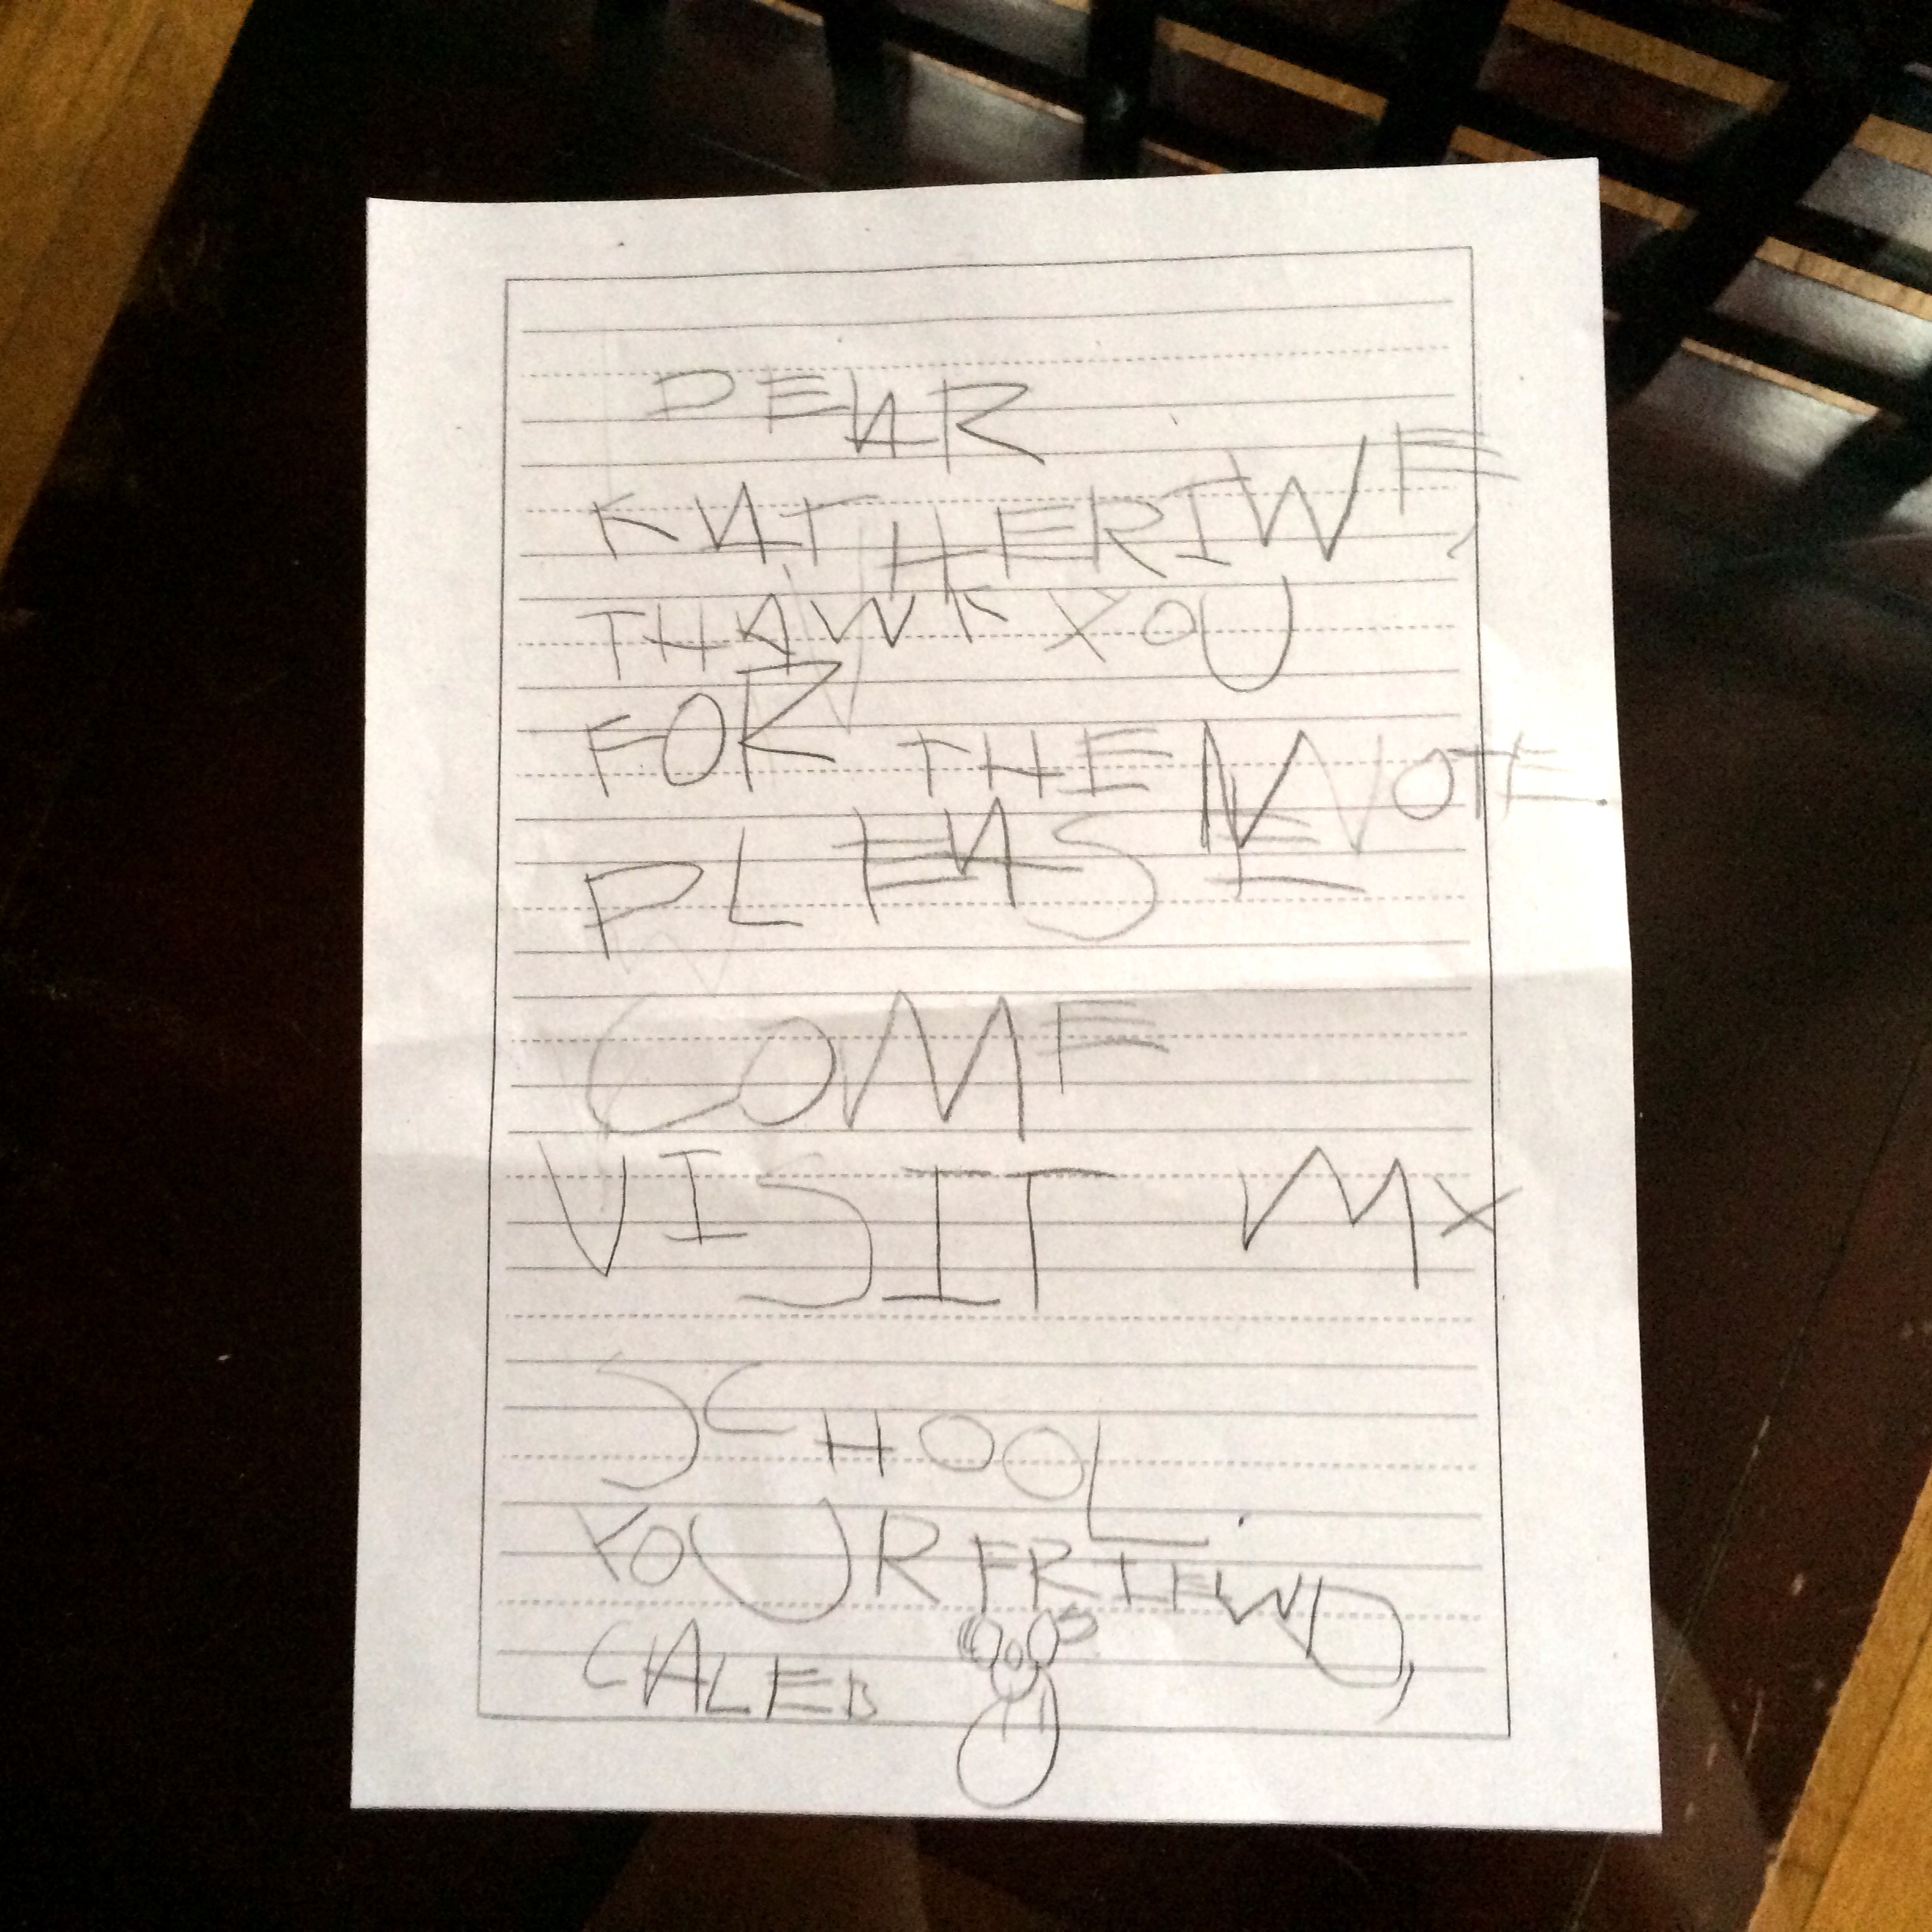 DEAR
KATHERINE,
THANK YOU
FOR THE NOTE
PLEASE
COME
VISIT MY
SCHOOL.
YOUR FRIEND,
CALEB